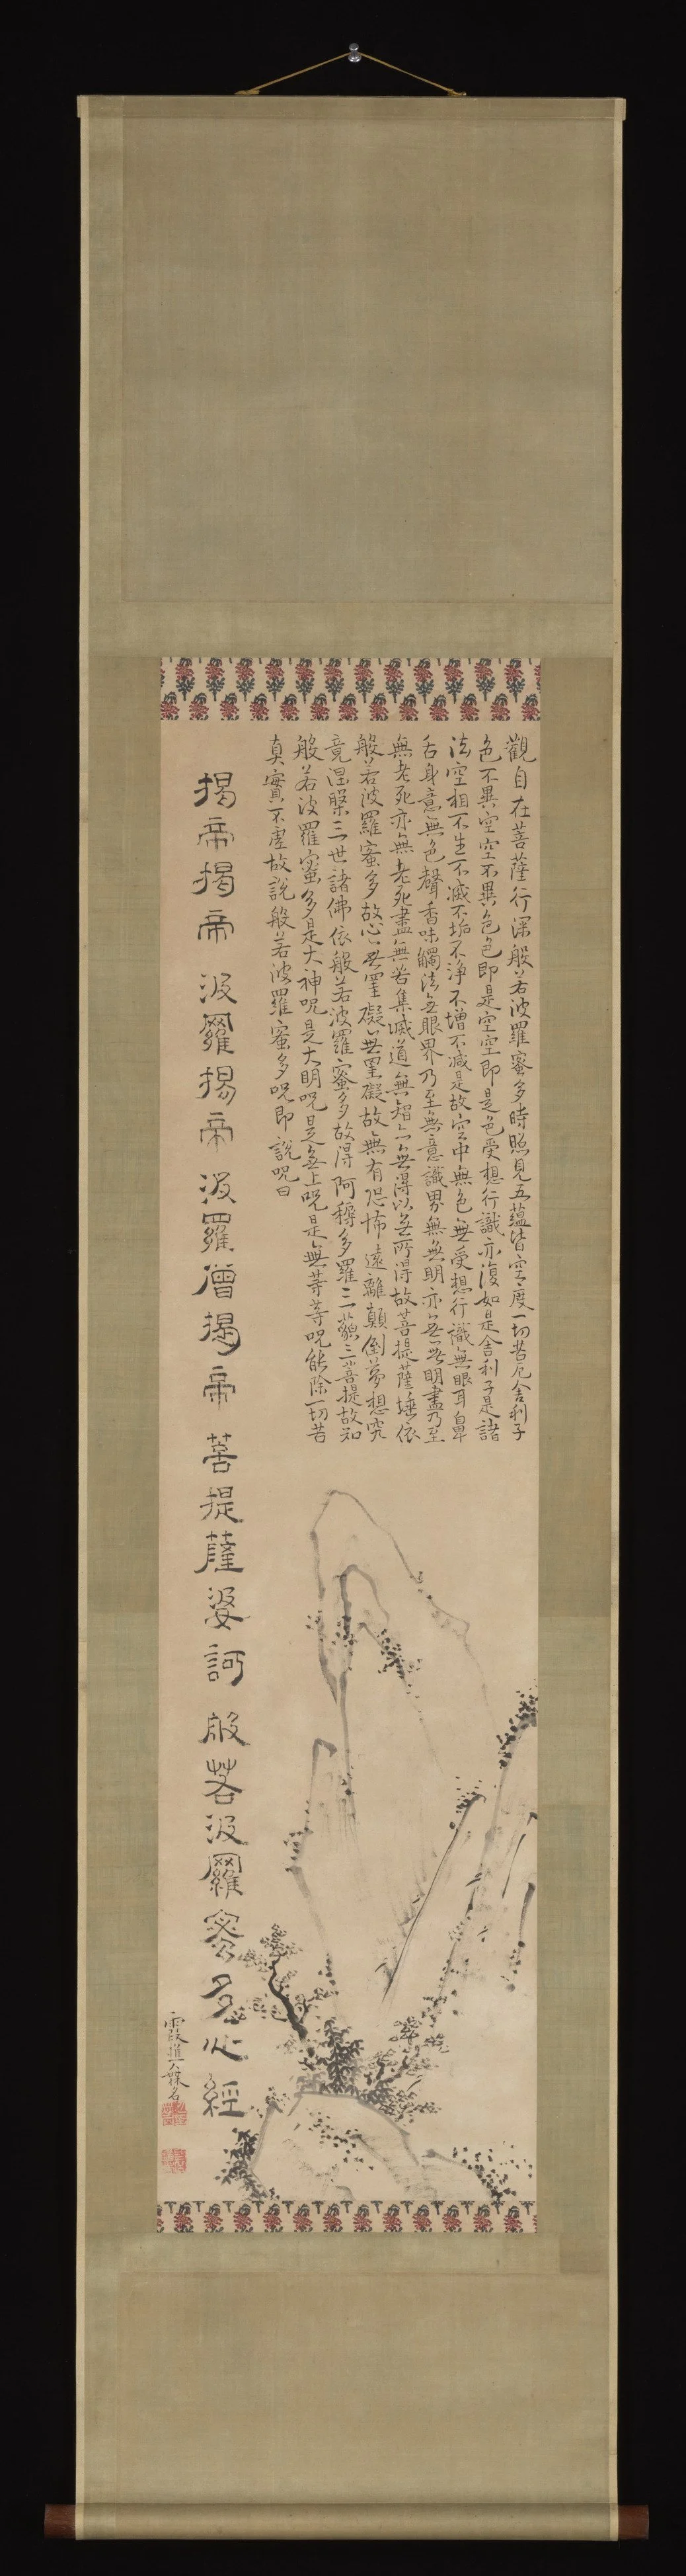 觀自在菩薩行深般若波羅蜜多時照見五蘊皆空度一切苦厄舍利子
色不異空空不異色色即是空空即是色受想行識亦復如是舍利子是諸
法空相不生不滅不垢不淨不增不減是故空中無色無受想行識無眼耳鼻
舌身意無色聲香味觸法無眼界乃至無意識界無無明亦無無明盡乃至
無老死亦無老死盡無苦集滅道無智亦無得以無所得故菩提薩埵依
般若波羅蜜多故心無罣礙無罣礙故無有恐怖遠離顛倒夢想究
竟涅槃三世諸佛依般若波羅蜜多故得阿耨多羅三藐三菩提故知
般若波羅蜜多是大神呪是大明呪是無上呪是無等等呪能除一切苦
真實不虛故說般若波羅蜜多呪即說呪曰
揭帝揭帝波羅揭帝波羅僧揭帝菩提薩婆訶般若波羅蜜多心經
霞樵